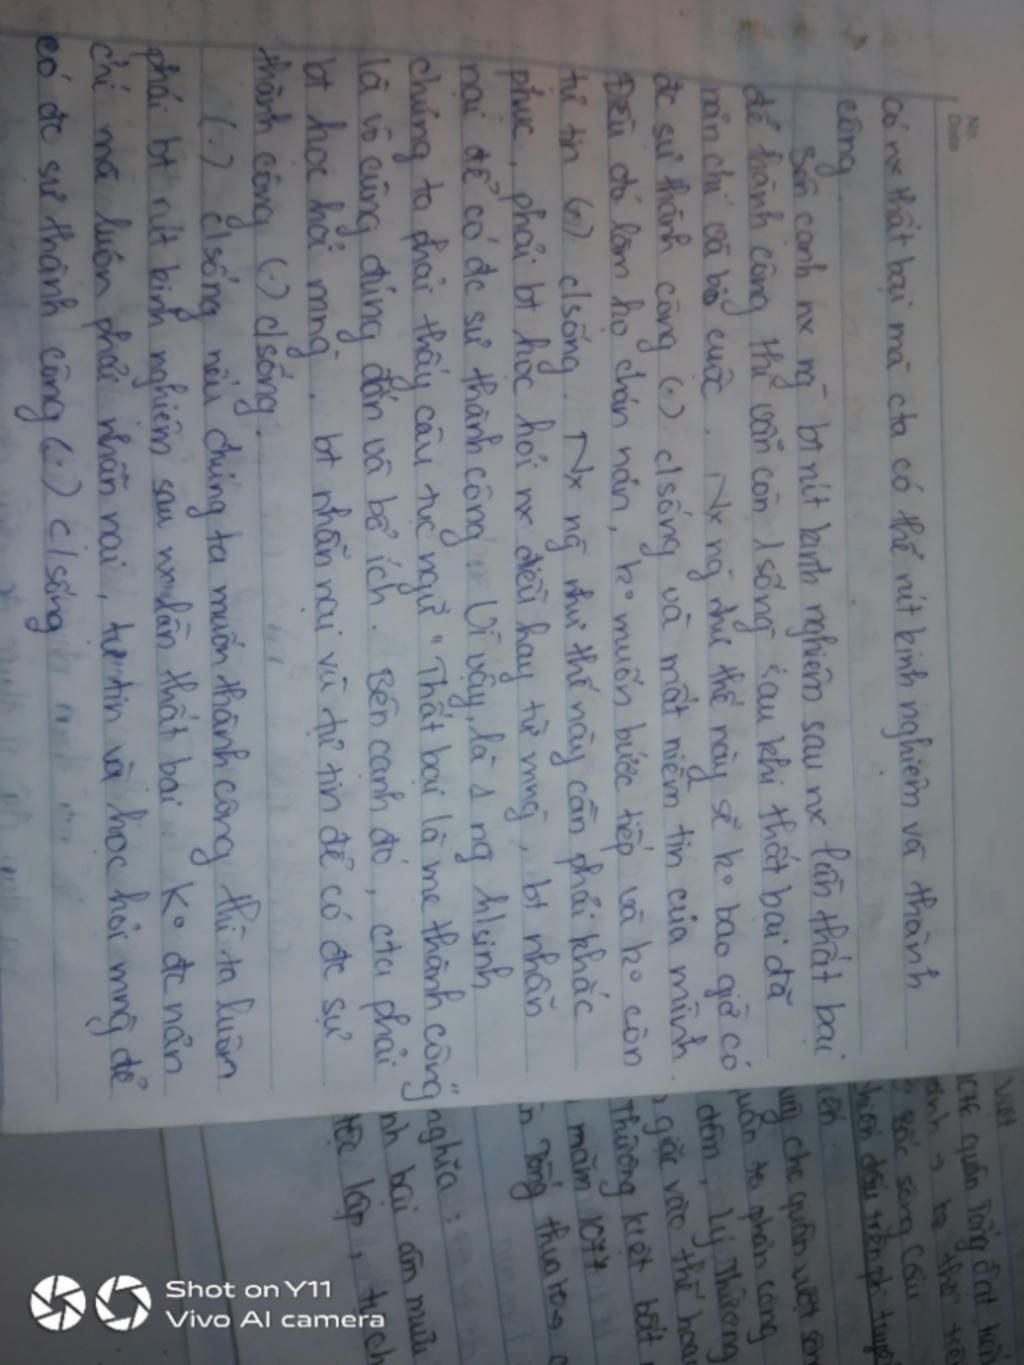 No.
Date
có nx thất bại mà cta có thể rút kinh nghiệm và thành
công.
Bên cạnh nx ng~ bt rút kinh nghiệm sau nx lần thất bại
để thành công thì vẫn còn 1 số ng~ sau khi thất bại đã
nản chí và bỏ cuộc. Nx ng~ như thế này sẽ k° bao giờ có
đc sự thành công (.) c/sống và mất niềm tin của mình.
Điều đó làm họ chán nản, k° muốn bước tiếp và k° còn
tự tin (.) c/sống. Nx ng~ như thế này cần phải khắc
phục, phải bt học hỏi nx điều hay từ mng~, bt nhẫn
nại để có đc sự thành công. Vì vậy, là 1 ng h/sinh
chúng ta phải thấy câu tục ngữ "Thất bại là mẹ thành công"
là vô cùng đúng đắn và bổ ích. Bên cạnh đó, cta phải
bt học hỏi mng~, bt nhẫn nại và tự tin để có đc sự
thành công (.) c/sống.
(.) c/sống nếu chúng ta muốn thành công thì ta luôn
phải bt rút kinh nghiệm sau nx lần thất bại. K° đc nản
chí mà luôn phải nhẫn nại, tự tin và học hỏi mng~ để
có đc sự thành công (.) c/sống
Việt
quân Tống đặt
sông Cầu
chiến đấu trên p tuyến
cho quân
quân ta phản công
đêm, Lý Thường
giặc vào thế
Thường Kiệt bắt
năm 1077
Tống thua
nghĩa:
bại âm mưu
độc lập,
Shot on Y11
Vivo AI camera